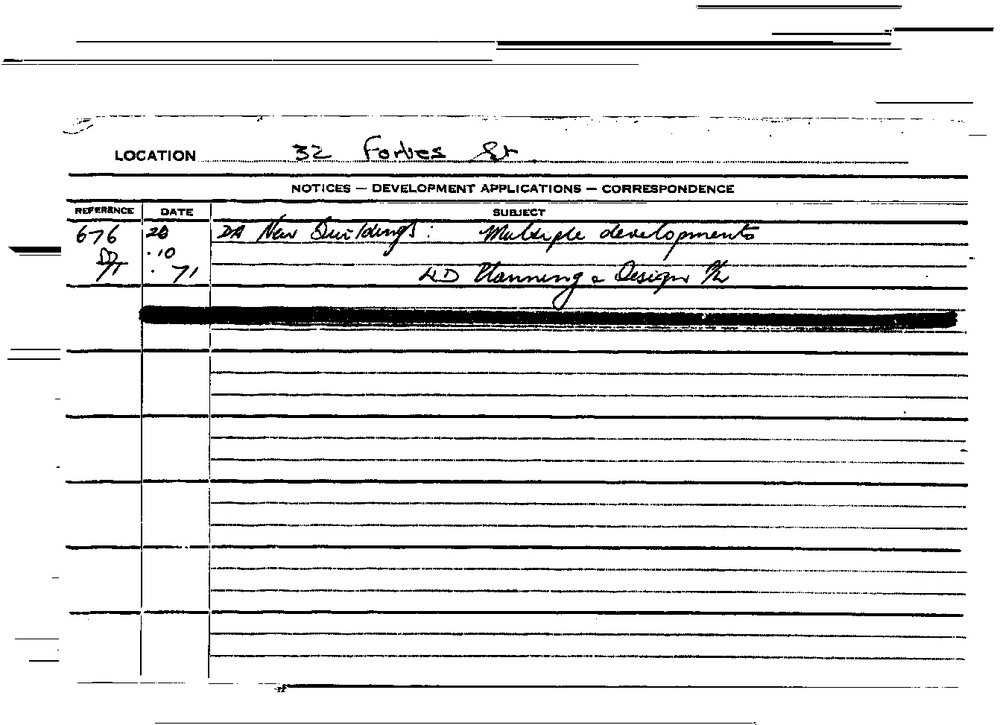 LOCATION 32 Forbes St
NOTICES — DEVELOPMENT APPLICATIONS — CORRESPONDENCE
REFERENCE DATE SUBJECT
676 20 DA New Buildings: Multiple developments
.10
71 . 71 Planning & Design P/L